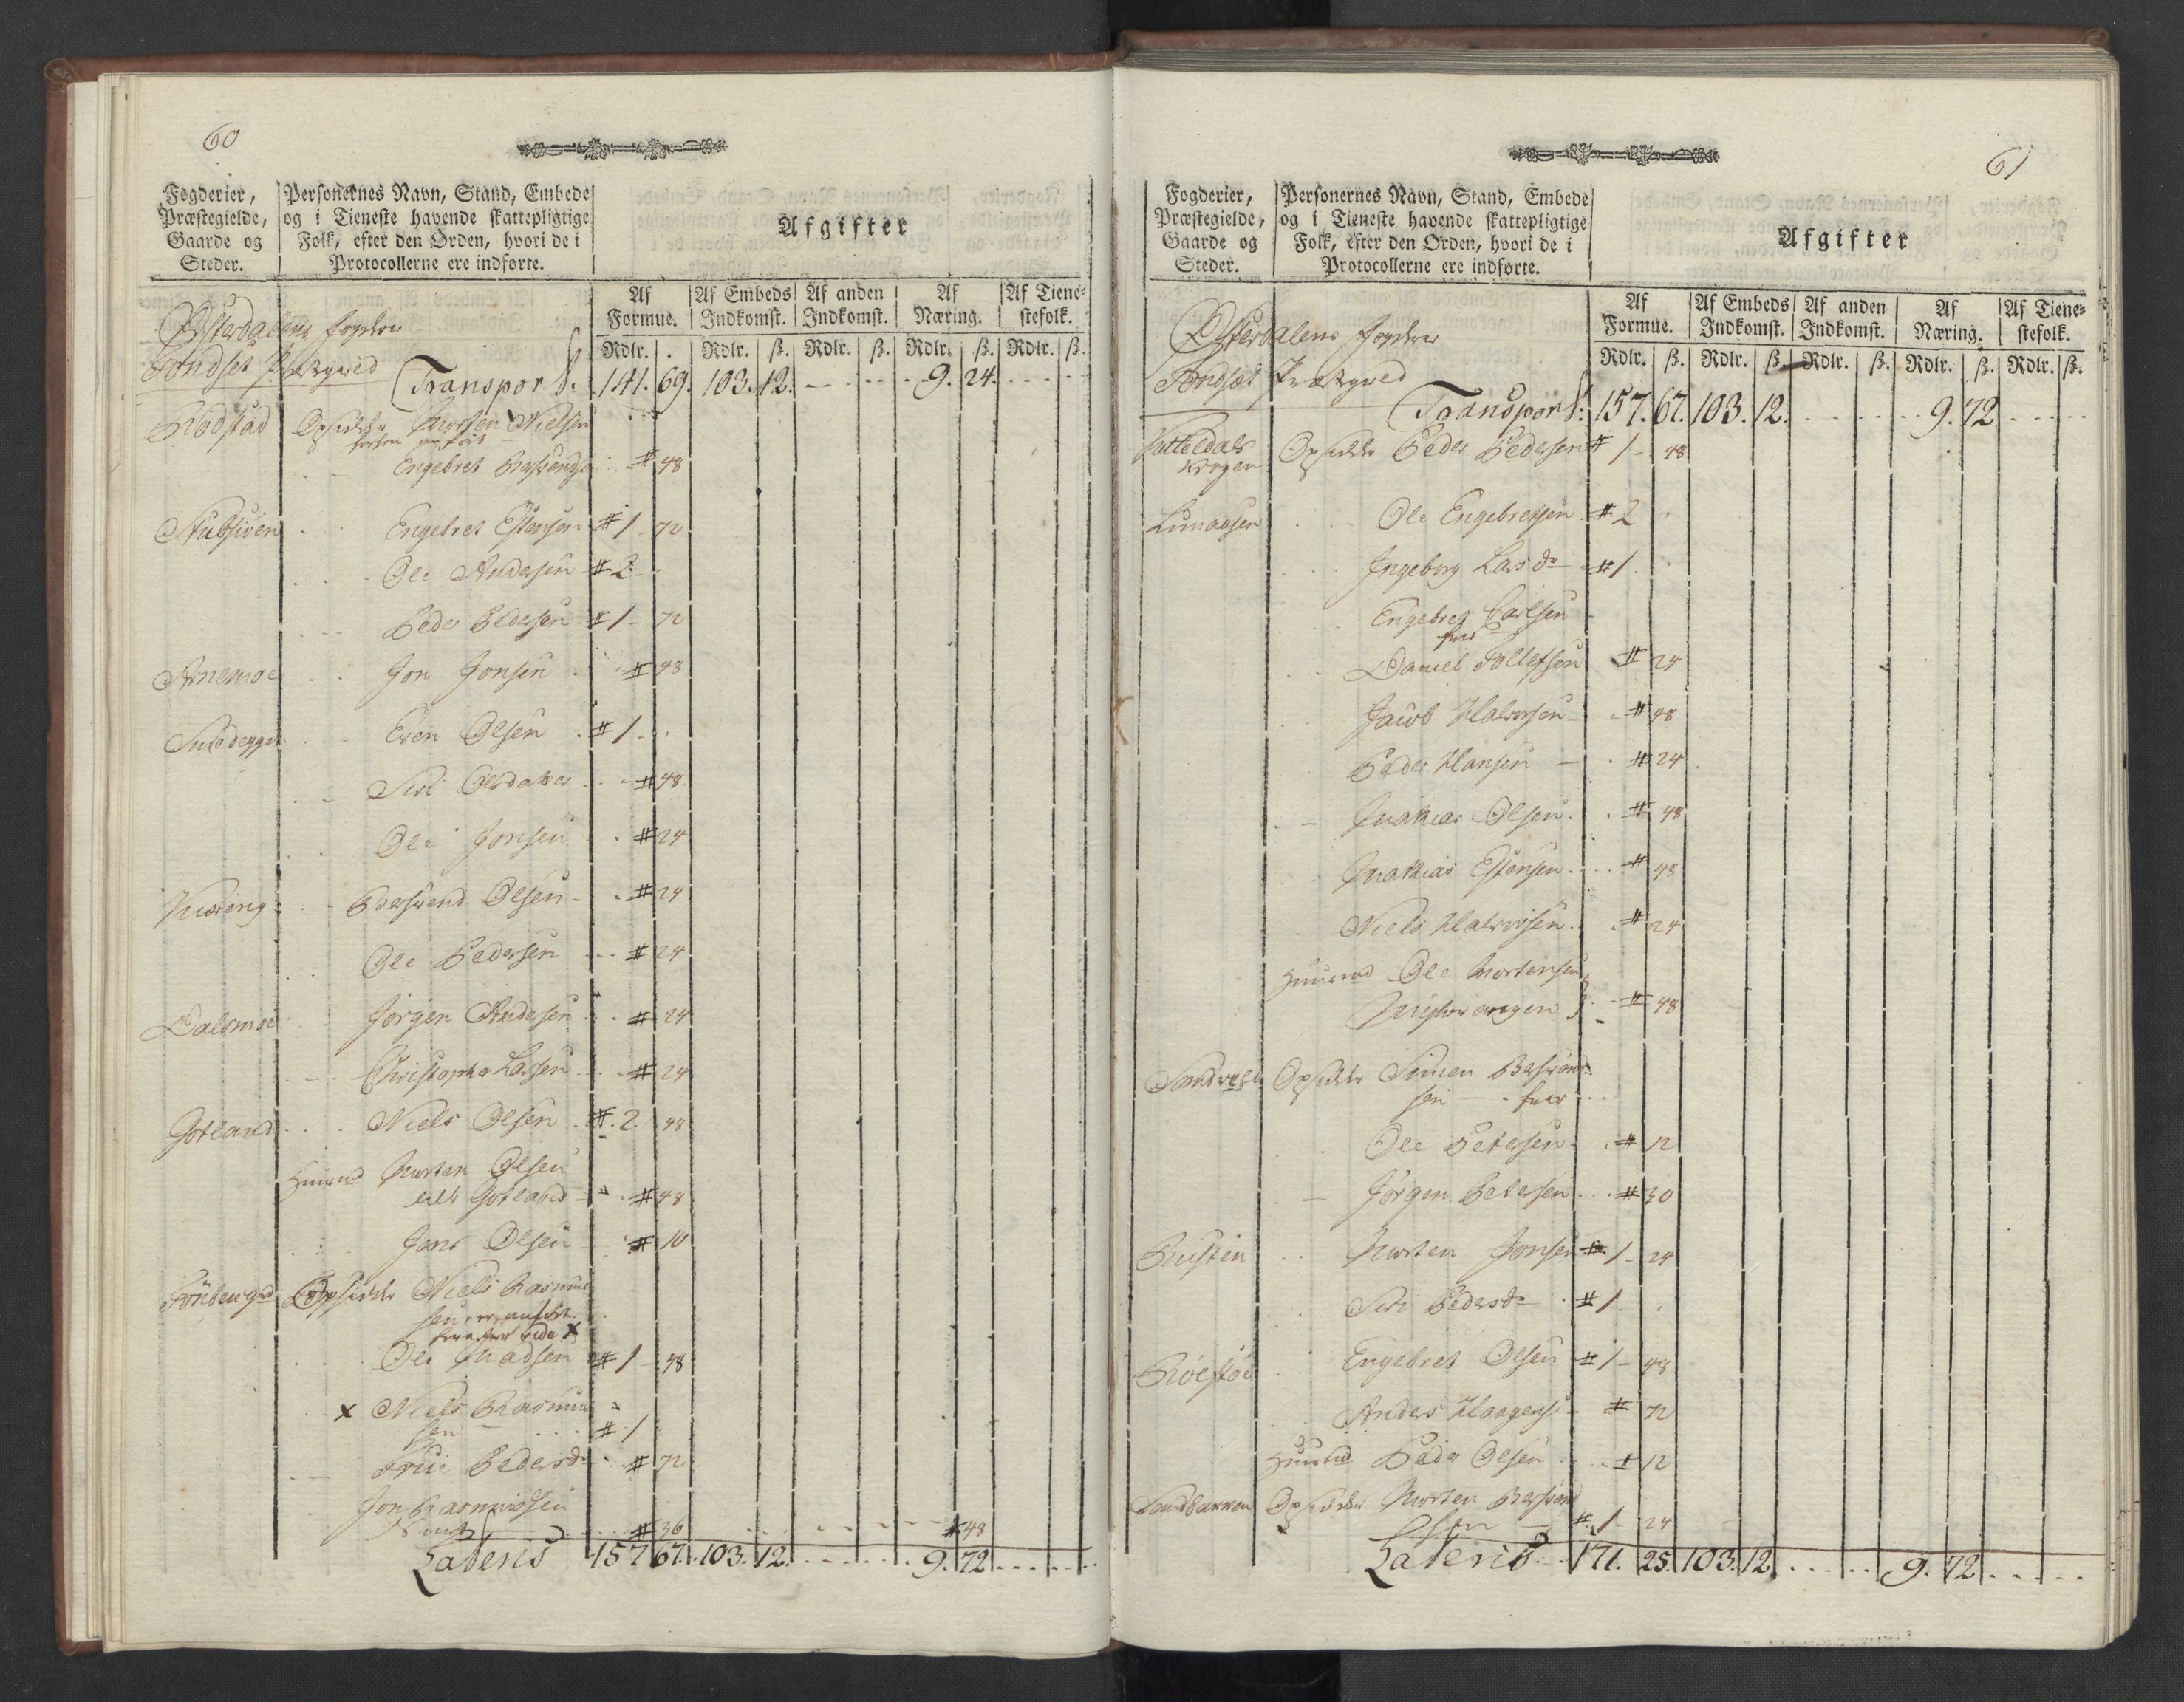 60
Fogderier,
Præstegielde,
Gaarde og
Steder.
Personernes Navn, Stand, Embede
og i Tieneste havende skattepligtige
Folk, efter den Orden, hvori de i
Protocollerne ere indførte.
Afgifter
Af Formue. Af Embeds Indkomst. Af anden Indkomst. Af Næring. Af Tienestefolk.
Rdlr. . Rdlr. ß. Rdlr. ß. Rdlr. ß. Rdlr. ß.
Østerdalens Fogderie
Tondset Præstegield
Transport. 141. 69. 103. 12. 9. 24.
Rødstad Opsidder Morten Nielsen
Engebret # 48
Stubsiøen Engebret Estensen # 1 - 72
Ole Andersen # 2
Peder Pedersen # 1 - 72
Arnemoe Jon Jonsen # 48
Even Olsen # 1
Siri Olsdatter # 48
Ole Jonsen # 24
Moseng Bersvend Olsen # 24
Ole Pedersen # 24
Dalsmoe Jørgen Andersen # 24
Christopher Larsen # 24
Gotland Niels Olsen # 2 48
Huusmd Morten Olsen
Gotland # 48
Jons Olsen # 10
Opsidder Niels Rasmus
sen, er anført
vide X
Ole Madsen # 1 - 48
X Niels Rasmus
sen # 1
Pedersdr # 72
Jon Rasmussen
# 36 # 48
Lateris 157 67. 103. 12. 9. 72
61
Fogderier,
Præstegielde,
Gaarde og
Steder.
Personernes Navn, Stand, Embede
og i Tieneste havende skattepligtige
Folk, efter den Orden, hvori de i
Protocollerne ere indførte.
Afgifter
Af Formue. Af Embeds Indkomst. Af anden Indkomst. Af Næring. Af Tienestefolk.
Rdlr. ß. Rdlr. ß. Rdlr. ß. Rdlr. ß. Rdlr. ß.
Østerdalens Fogderie
Tondset Præstegield
Transport. 157. 67. 103. 12. 9. 72
Opsidder Peder Pedersen # 1 - 48
Ole Engebretsen # 2
Ingeborg Larsdr # 1
Engebret Carlsen
Daniel Tollefsen # 24
Jacob Halvorsen # 48
Peder Hansen # 24
Mathias Olsen # 48
Mathias Estensen # 48
Niels Halvorsen # 24
Huusmd Ole Mortensen
# 48
Opsidder Simen Bersvend
sen
Ole Petersen # 12
Jørgen Petersen # 30
Morten Jonsen # 1 - 24
Siri Pedersdr # 1
Engebret Olsen # 1 - 48
Anders # 72
Huusmd Peder Olsen # 12
Sandbakken Opsidder Morten Bersvend
sen # 1 - 24
Lateris 171. 25. 103. 12. 9. 72